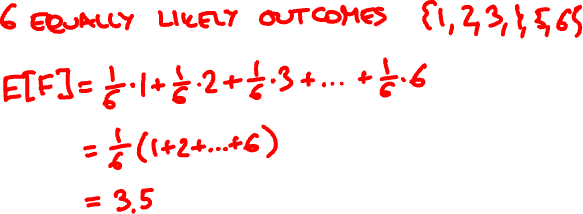 6 EQUALLY LIKELY OUTCOMES {1,2,3,!,5,6}
E[F] = 1/6·1 + 1/6·2 + 1/6·3 + ... + 1/6·6
= 1/6 (1+2+...+6)
= 3.5